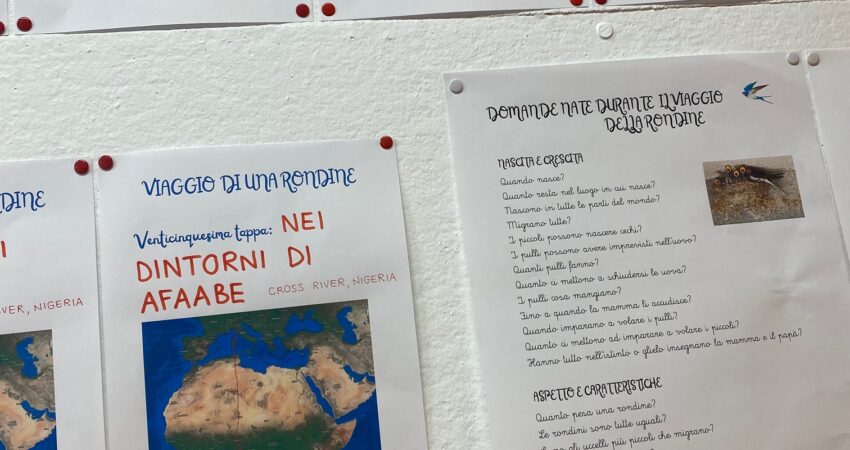 DINE
I
VER, NIGERIA
VIAGGIO DI UNA RONDINE
Venticinquesima tappa: NEI
DINTORNI DI
AFAABE CROSS RIVER, NIGERIA
DOMANDE NATE DURANTE IL VIAGGIO
DELLA RONDINE
NASCITA E CRESCITA
Quando nasce?
Quanto resta nel luogo in cui nasce?
Nascono in tutte le parti del mondo?
Migrano tutte?
I piccoli possono nascere cechi?
I pulli possono avere imprevisti nell'uovo?
Quanti pulli fanno?
Quanto ci mettono a schiudersi le uova?
I pulli cosa mangiano?
Fino a quando la mamma li accudisce?
Quando imparano a volare i pulli?
Quanto ci mettono ad imparare a volare i piccoli?
Hanno tutto nell'istinto o glielo insegnano la mamma e il papà?
ASPETTO E CARATTERISTICHE
Quanto pesa una rondine?
Le rondini sono tutte uguali?
gli uccelli più piccoli che migrano?